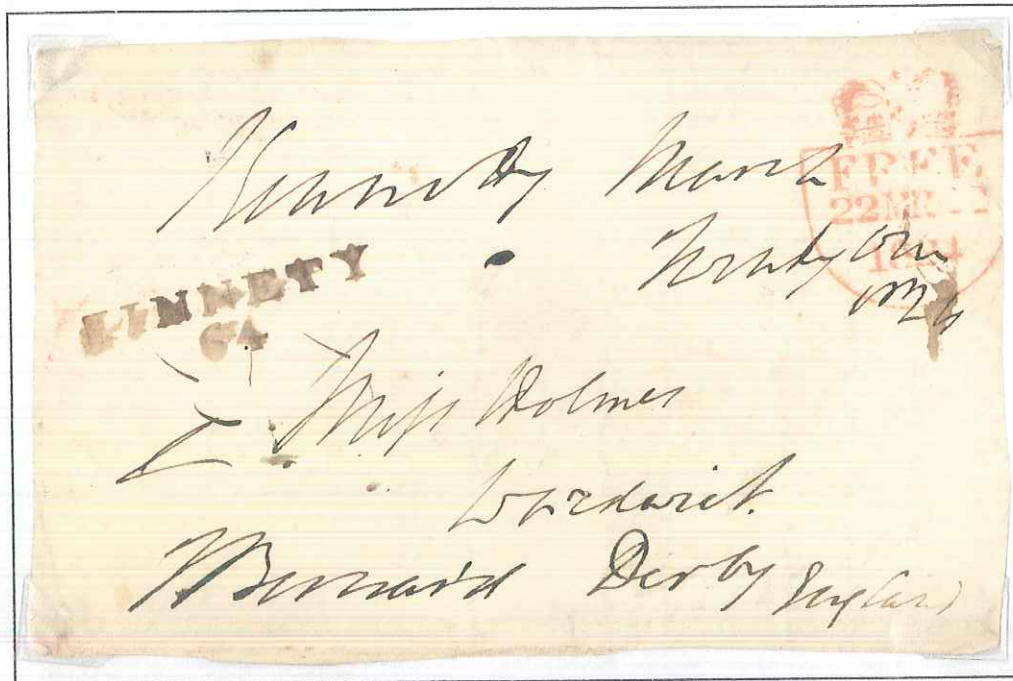 Kinnitty March
Twenty One
1824
FREE
22MR
1824
KINNETY
64
Miss Holmes
Wardwick
TBernard Derby England